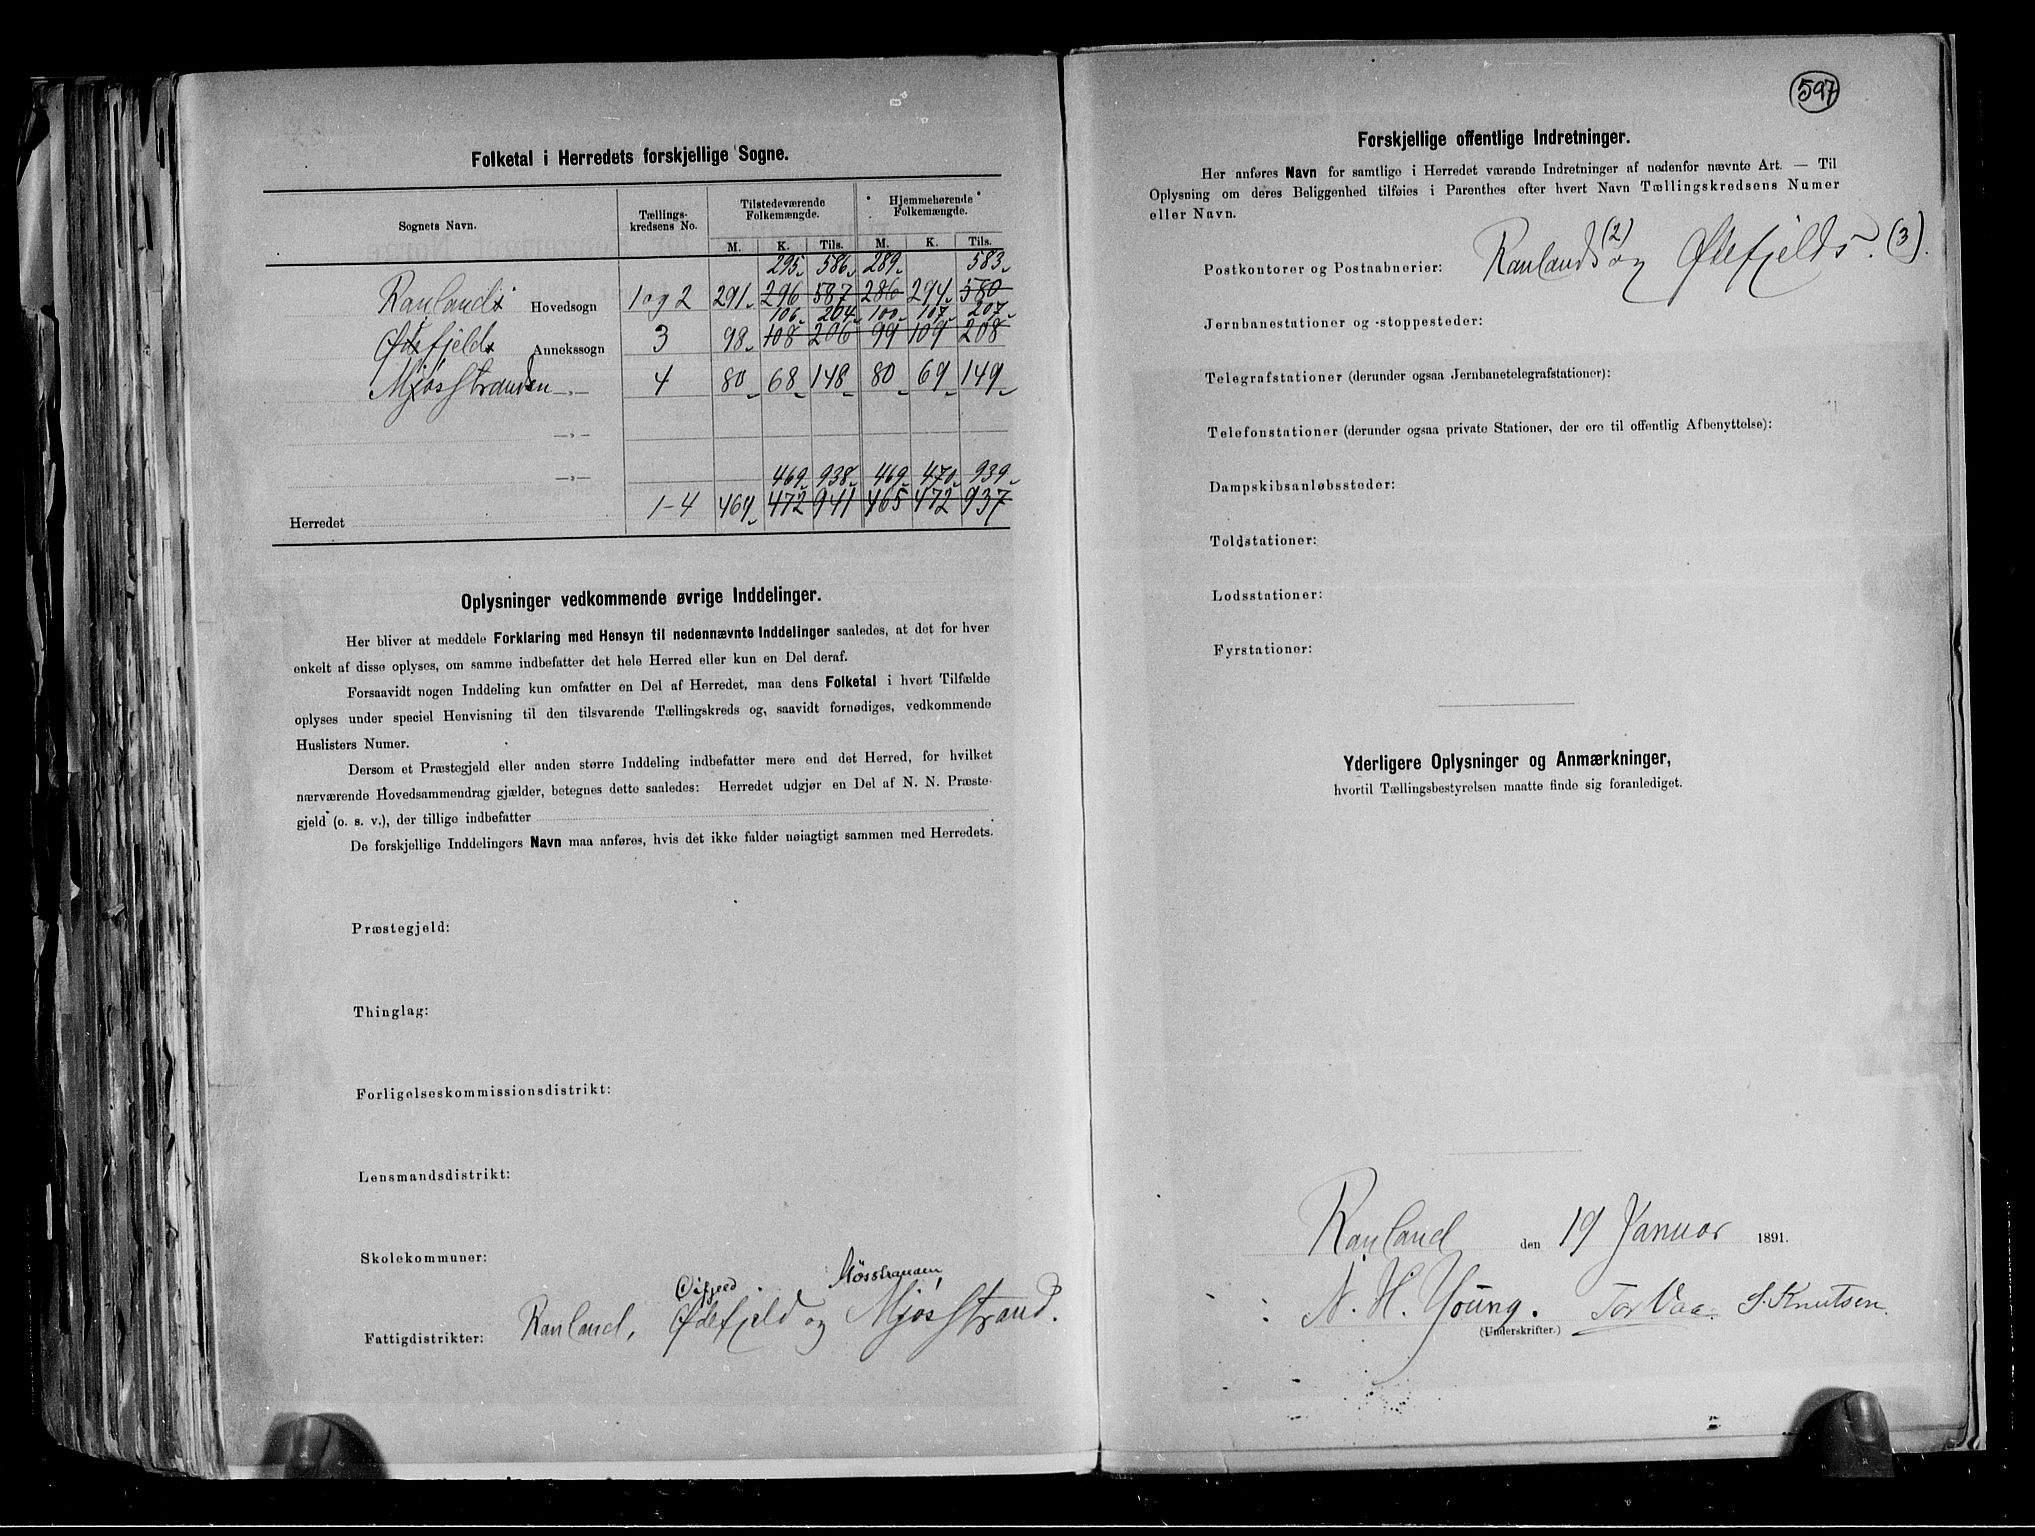 Folketal i Herredets forskjellige Sogne.
Sognets Navn. Tællings-kredsens No. Tilstedeværende Folkemængde. Hjemmehørende Folkemængde.
M. K. Tils. M. K. Tils.
295 586 289 583
Raulands Hovedsogn 1 og 2 291 296 587 286 294 580
106 204 100 107 207
Ødefjelds Annekssogn 3 98 108 206 99 109 208
Mjøsstranden —„— 4 80 68 148 80 69 149
—„—
—„—
469 938 469 470 939
Herredet 1-4 469 472 941 465 472 937
Oplysninger vedkommende øvrige Inddelinger.
Her bliver at meddele Forklaring med Hensyn til nedennævnte Inddelinger saaledes, at det for hver
enkelt af disse oplyses, om samme indbefatter det hele Herred eller kun en Del deraf.
Forsaavidt nogen Inddeling kun omfatter en Del af Herredet, maa dens Folketal i hvert Tilfælde
oplyses under speciel Henvisning til den tilsvarende Tællingskreds og, saavidt fornødiges, vedkommende
Huslisters Numer.
Dersom et Præstegjeld eller anden større Inddeling indbefatter mere end det Herred, for hvilket
nærværende Hovedsammendrag gjælder, betegnes dette saaledes: Herredet udgjør en Del af N. N. Præste-
gjeld (o. s. v.), der tillige indbefatter
De forskjellige Inddelingers Navn maa anføres, hvis det ikke falder nøiagtigt sammen med Herredets.
Præstegjeld:
Thinglag:
Forligelseskommissionsdistrikt:
Lensmandsdistrikt:
Skolekommuner:
Øifjeld Møsstranden
Fattigdistrikter: Rauland, Ødefjeld og Mjøsstrand.
597
Forskjellige offentlige Indretninger.
Her anføres Navn for samtlige i Herredet værende Indretninger af nedenfor nævnte Art. — Til
Oplysning om deres Beliggenhed tilføies i Parenthes efter hvert Navn Tællingskredsens Numer
eller Navn.
Postkontorer og Postaabnerier: Raulands (2) og Ødefjelds (3).
Jernbanestationer og -stoppesteder:
Telegrafstationer (derunder ogsaa Jernbanetelegrafstationer):
Telefonstationer (derunder ogsaa private Stationer, der ere til offentlig Afbenyttelse):
Dampskibsanløbssteder:
Toldstationer:
Lodsstationer:
Fyrstationer:
Yderligere Oplysninger og Anmærkninger,
hvortil Tællingsbestyrelsen maatte finde sig foranlediget.
Rauland den 19 Januar 1891.
N. H. Young. Tor Vaa. S. Knutsen.
(Underskrifter.)